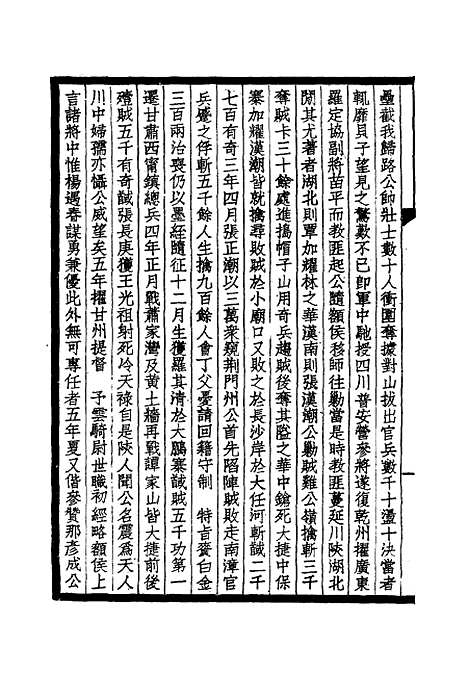 壘截我歸路公帥壯士數十人衝圍奪據對山拔出官兵數千十盪十決當者
輒靡貝子望見之驚歎不已卽軍中馳授四川普安營參將遂復乾州擢廣東
羅定協副將苗平而教匪起公隨額侯移師往勦當是時教匪蔓延川陝湖北
閒其尤著者湖北則覃加耀林之華漢南則張漢潮公勦賊雞公嶺擒斬三千
奪賊卡三十餘處進搗帽子山用奇兵趨賊後奪其隘之華中鎗死大捷中保
寨加耀漢潮皆就擒尋敗賊於小廟口又敗之於長沙岸於大任河斬馘二千
七百有奇三年四月張正潮以三萬衆窺荆門州公首先陷陣賊敗走南漳官
兵蹙之俘斬五千餘人生擒九百餘人會丁父憂請回籍守制　特旨賚白金
三百兩治喪仍以墨絰隨征十二月生獲羅其清於大鵬寨馘賊五千功第一
遷甘肅西甯鎮總兵四年正月戰蕭家灣及黃土牆再戰譚家山皆大捷前後
殪賊五千有奇馘張長庚獲王光祖射死冷天祿自是陝人聞公名震爲天人
川中婦孺亦懾公威望矣五年擢甘州提督　予雲騎尉世職初經略額侯上
言諸將中惟楊遇春謀勇兼優此外無可專任者五年夏又偕參贊那彥成公